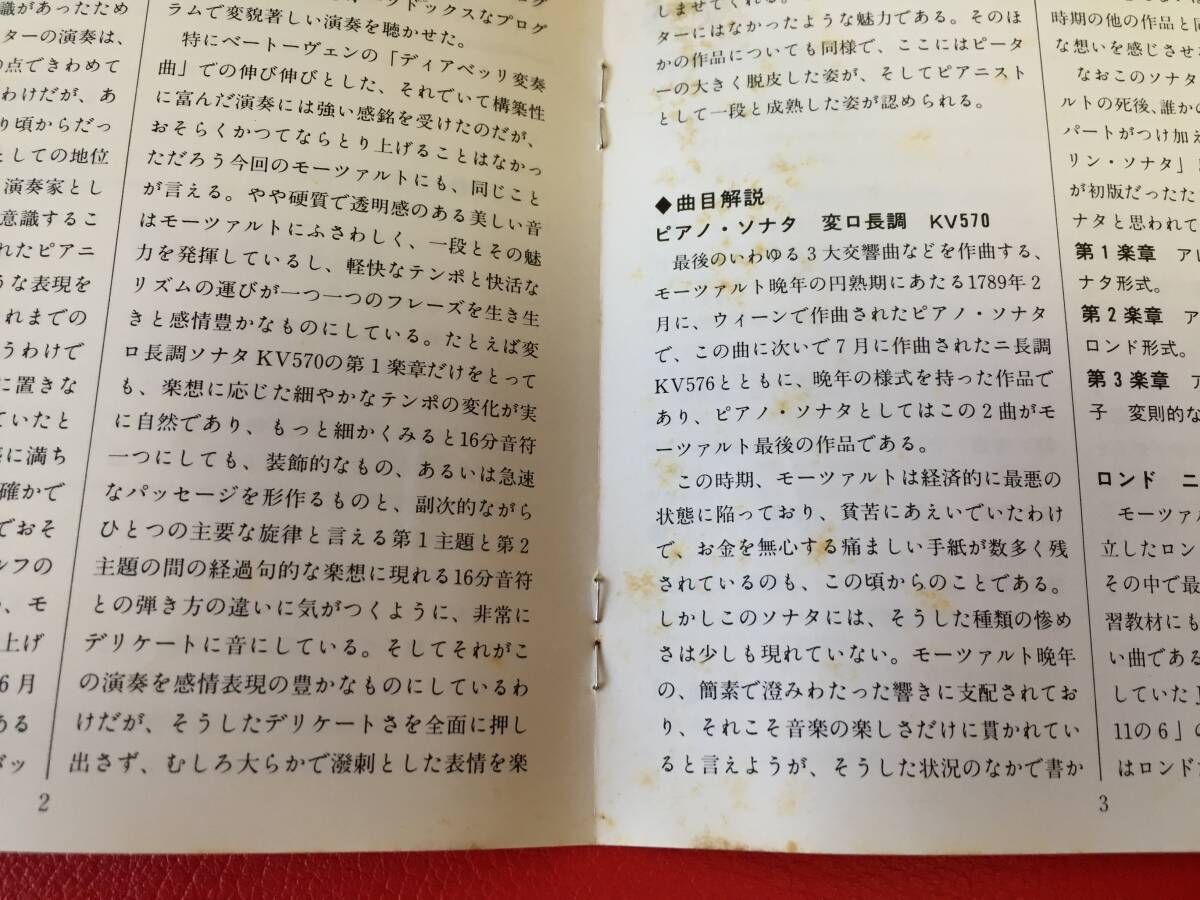 識があったため
ターの演奏は、
の点できわめて
わけだが、あ
り頃からだっ
としての地位
演奏家とし
意識するこ
れたピアニ
うな表現を
れまでの
うわけで
に置きな
ていたと
に満ち
確かで
でおそ
ルフの
、モ
上げ
6月
ある
バッ
ドックスなプログ
ラムで変貌著しい演奏を聴かせた。
特にベートーヴェンの「ディアベッリ変奏
曲」での伸び伸びとした、それでいて構築性
に富んだ演奏には強い感銘を受けたのだが、
おそらくかつてならとり上げることはなかっ
ただろう今回のモーツァルトにも、同じこと
が言える。やや硬質で透明感のある美しい音
はモーツァルトにふさわしく、一段とその魅
力を発揮しているし、軽快なテンポと快活な
リズムの運びが一つ一つのフレーズを生き生
きと感情豊かなものにしている。たとえば変
ロ長調ソナタKV570の第1楽章だけをとって
も、楽想に応じた細やかなテンポの変化が実
に自然であり、もっと細かくみると16分音符
一つにしても、装飾的なもの、あるいは急速
なパッセージを形作るものと、副次的ながら
ひとつの主要な旋律と言える第1主題と第2
主題の間の経過句的な楽想に現れる16分音符
との弾き方の違いに気がつくように、非常に
デリケートに音にしている。そしてそれがこ
の演奏を感情表現の豊かなものにしているわ
けだが、そうしたデリケートさを全面に押し
出さず、むしろ大らかで潑剌とした表情を楽
2
しませてくれる。
ターにはなかったような魅力である。そのほ
かの作品についても同様で、ここにはピータ
ーの大きく脱皮した姿が、そしてピアニスト
として一段と成熟した姿が認められる。
◆曲目解説
ピアノ・ソナタ 変ロ長調 KV570
最後のいわゆる3大交響曲などを作曲する、
モーツァルト晩年の円熟期にあたる1789年2
月に、ウィーンで作曲されたピアノ・ソナタ
で、この曲に次いで7月に作曲されたニ長調
KV576とともに、晩年の様式を持った作品で
あり、ピアノ・ソナタとしてはこの2曲がモ
ーツァルト最後の作品である。
この時期、モーツァルトは経済的に最悪の
状態に陥っており、貧苦にあえいでいたわけ
で、お金を無心する痛ましい手紙が数多く残
されているのも、この頃からのことである。
しかしこのソナタには、そうした種類の惨め
さは少しも現れていない。モーツァルト晩年
の、簡素で澄みわたった響きに支配されてお
り、それこそ音楽の楽しさだけに貫かれてい
ると言えようが、そうした状況のなかで書か
時期の他の作品と同
な想いを感じさせ
なおこのソナタ
ルトの死後、誰かの
パートがつけ加え
リン・ソナタ」
が初版だったた
ナタと思われて
第1楽章 アレ
ナタ形式。
第2楽章 ア
ロンド形式。
第3楽章 ア
子 変則的な
ロンド ニ
モーツァル
立したロン
その中で最
習教材にも
い曲である
していた
11の6」の
はロンド
3